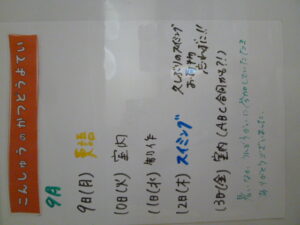 こんしゅうのかつどうよてい
9月
9日(月) 英語
10日(火) 室内
11日(水) 制作
12日(木) スイミング
久しぶりのスイミング
お荷物
忘れずに!!
13日(金) 室内(ABC合同かも?!)
ありがとうございました。